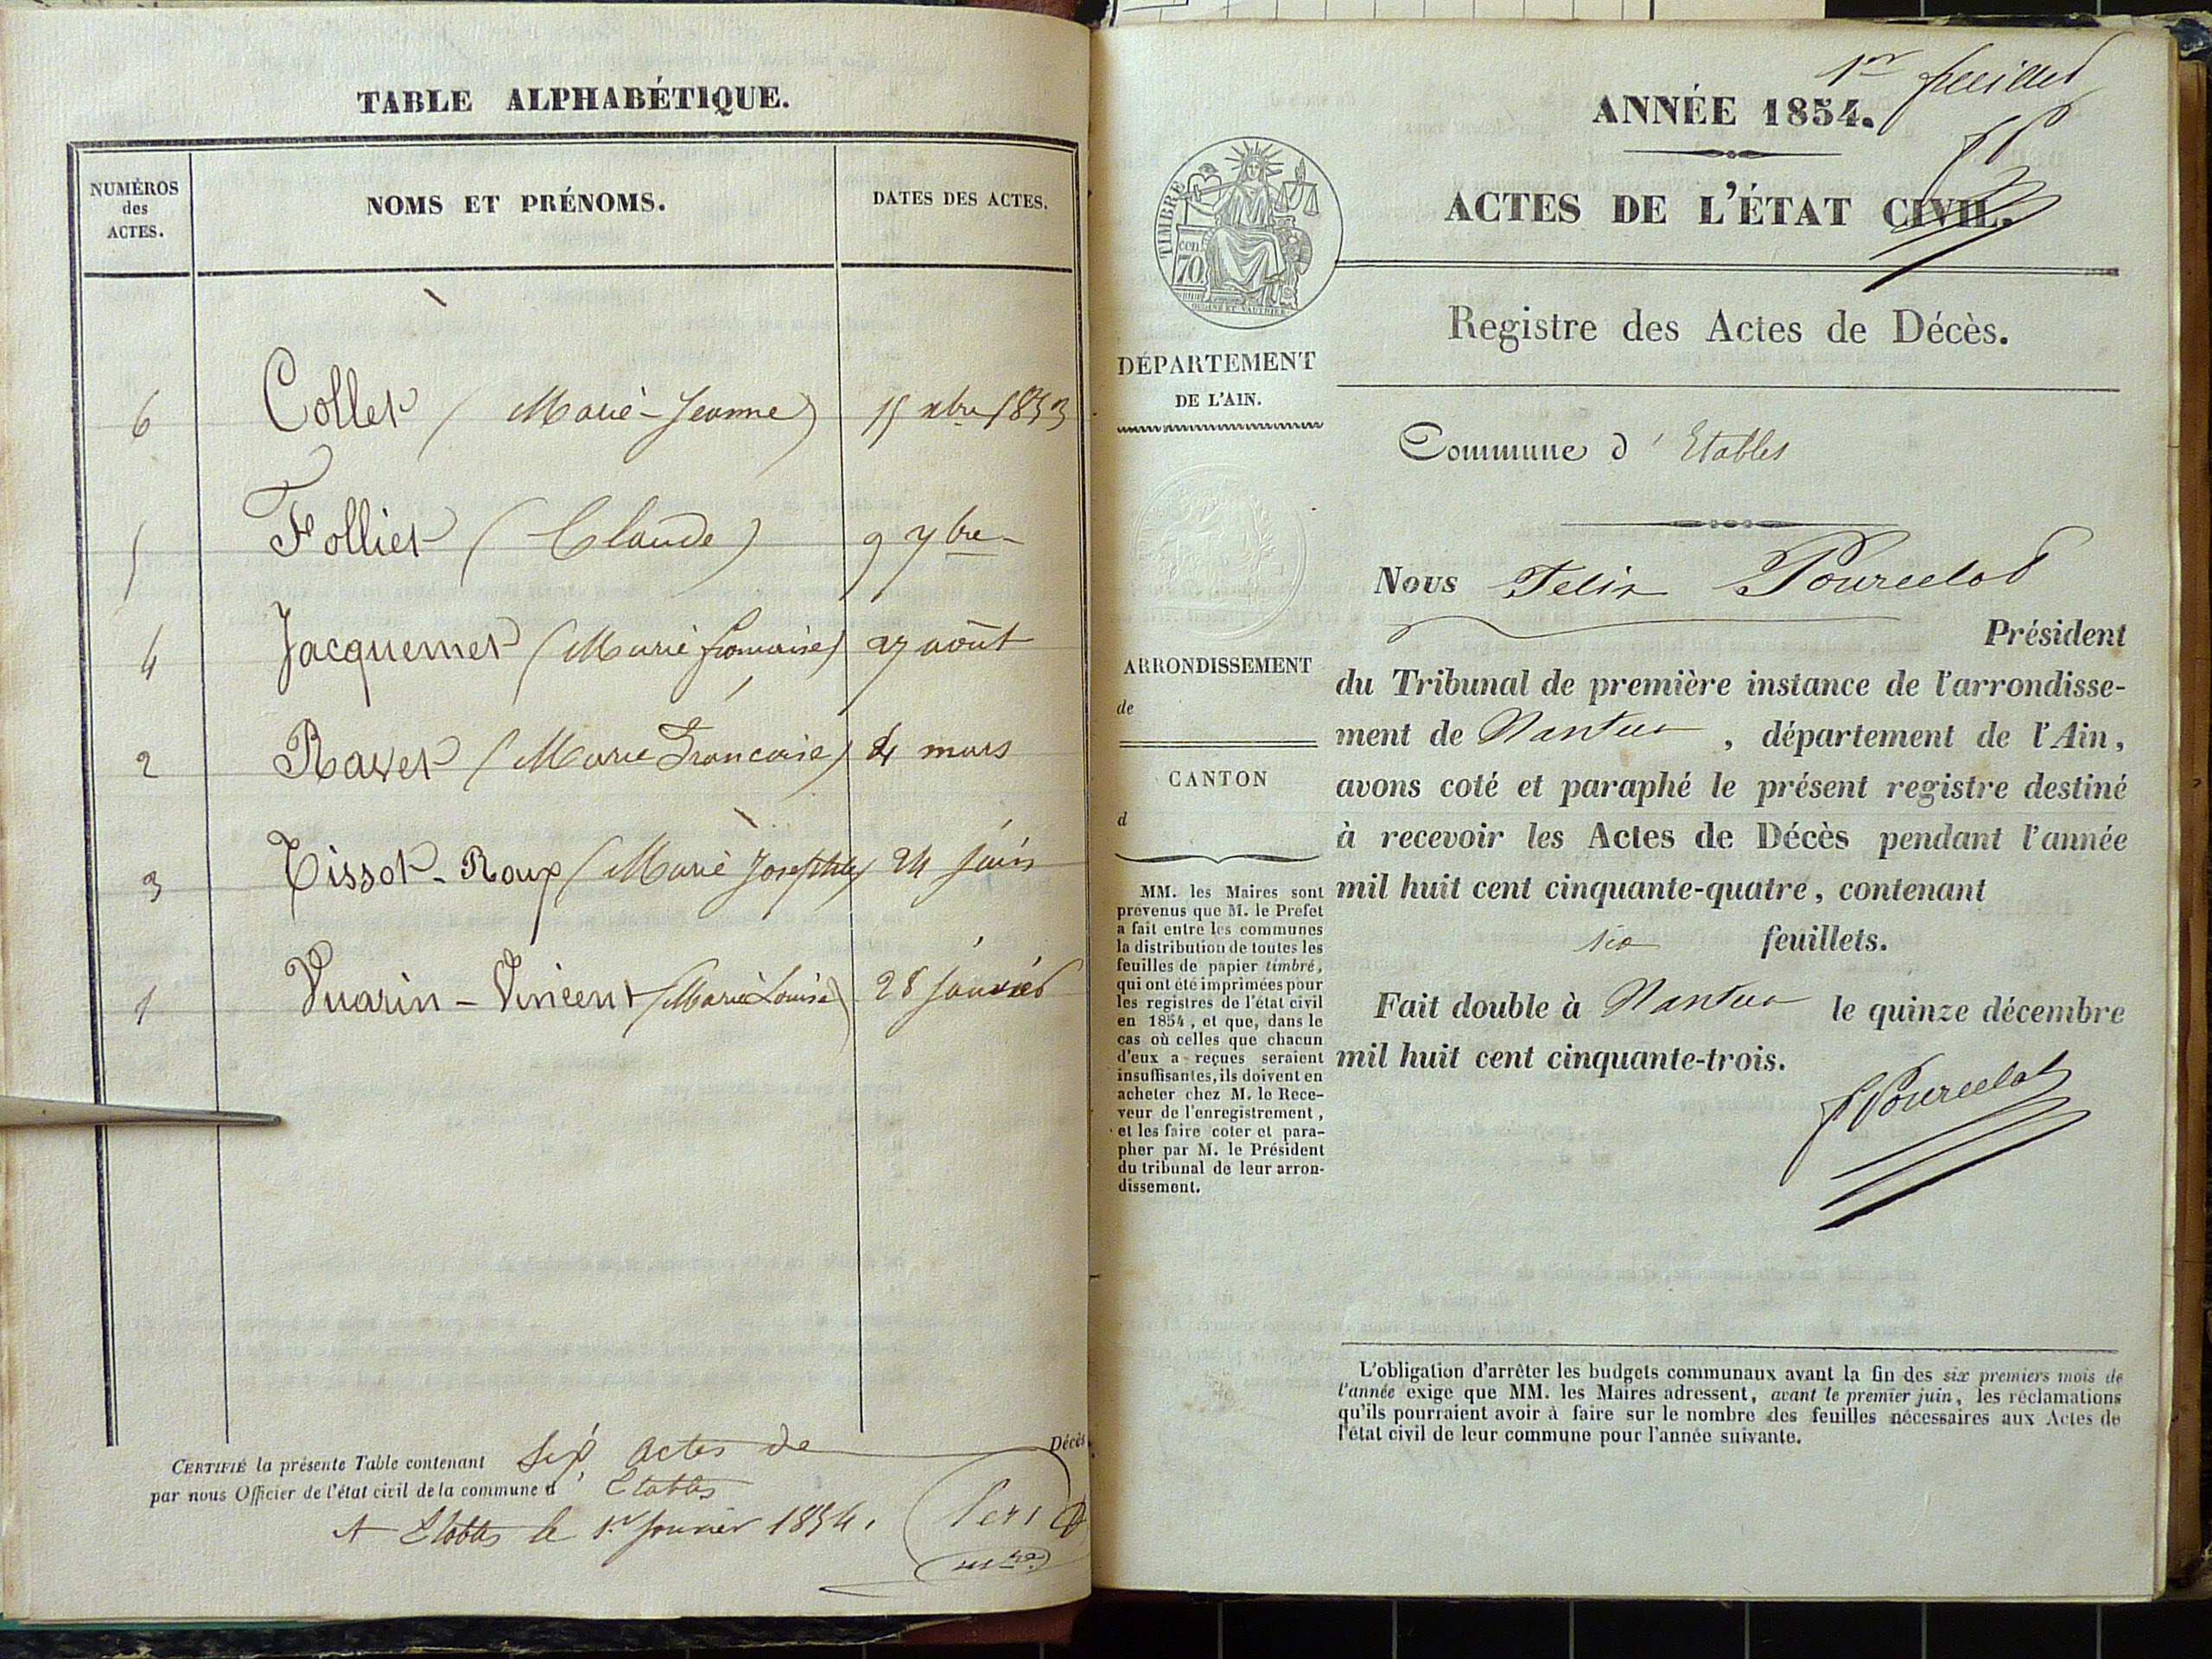 TABLE ALPHABÉTIQUE.
NUMÉROS
des
ACTES.
NOMS ET PRÉNOMS.
DATES DES ACTES.
6 Collet (Marie-Jeanne) 15 xbre 1853
5 Folliet (Claude) 9 7bre
4 Jacquemet (Marie françoise) 27 août
2 Ravet (Marie Françoise) 4 mars
3 Tissot-Roux (Marie Josephte) 24 juin
1 Vuarin-Vincent (Marie Louise) 28 janvier
CERTIFIÉ la présente Table contenant Six actes de Décès
par nous Officier de l'état civil de la commune d'Etables
A Etables le 1er janvier 1854.
1er feuillet
ANNÉE 1854.
ACTES DE L'ÉTAT CIVIL.
TIMBRE
cen.
70
Registre des Actes de Décès.
DÉPARTEMENT
DE L'AIN.
Commune d'Etables
Nous Felix Pourcelot
Président
du Tribunal de première instance de l'arrondisse-
ment de Nantua, département de l'Ain,
avons coté et paraphé le présent registre destiné
à recevoir les Actes de Décès pendant l'année
mil huit cent cinquante-quatre, contenant
six feuillets.
Fait double à Nantua le quinze décembre
mil huit cent cinquante-trois.
F Pourcelot
ARRONDISSEMENT
de
CANTON
d
MM. les Maires sont
prévenus que M. le Préfet
a fait entre les communes
la distribution de toutes les
feuilles de papier timbré,
qui ont été imprimées pour
les registres de l'état civil
en 1854, et que, dans le
cas où celles que chacun
d'eux a reçues seraient
insuffisantes, ils doivent en
acheter chez M. le Rece-
veur de l'enregistrement,
et les faire coter et para-
pher par M. le Président
du tribunal de leur arron-
dissement.
L'obligation d'arrêter les budgets communaux avant la fin des six premiers mois de
l'année exige que MM. les Maires adressent, avant le premier juin, les réclamations
qu'ils pourraient avoir à faire sur le nombre des feuilles nécessaires aux Actes de
l'état civil de leur commune pour l'année suivante.